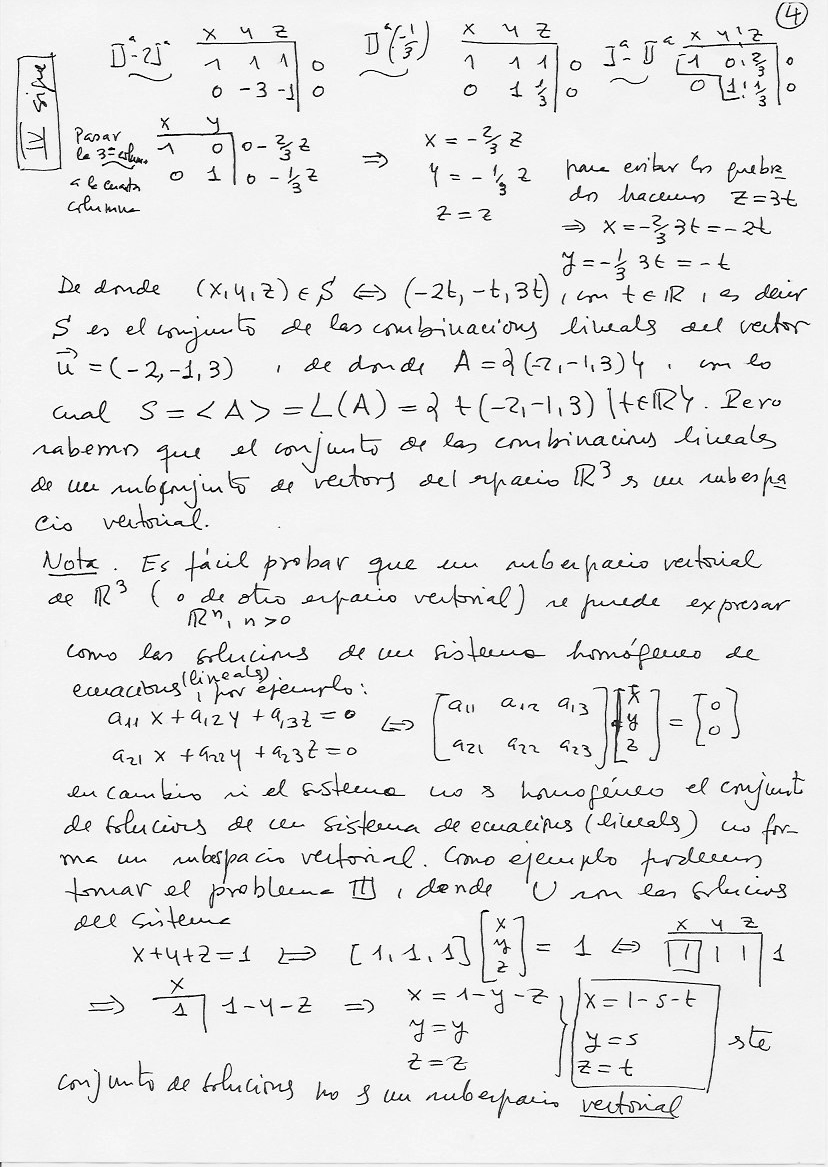 4
IV sigue
IIª-2Iª
x y z
1 1 1 | 0
0 -3 -1 | 0
IIª(-1/3)
x y z
1 1 1 | 0
0 1 1/3 | 0
Iª-IIª
x y z
1 0 2/3 | 0
0 1 1/3 | 0
Pasar
la 3ª colum
a la cuarta
columna
x y
1 0 | 0-2/3 z
0 1 | 0-1/3 z
⇒
x = -2/3 z
y = -1/3 z
z = z
para evitar los quebra
dos hacemos z=3t
⇒ x = -2/3 3t = -2t
y = -1/3 3t = -t
De donde (x,y,z) ∈ S ⇔ (-2t, -t, 3t), con t ∈ ℝ, es decir
S es el conjunto de las combinacions lineals del vector
u⃗ = (-2,-1,3) , de donde A = {(-2,-1,3)}, con lo
cual S = <A> = L(A) = { t(-2,-1,3) | t∈ℝ}. Pero
sabemos que el conjunto de las combinacions lineales
de un subconjunto de vectors del espacio ℝ³ es un subespa
cio vectorial.
Nota. Es fácil probar que un subespacio vectorial
de ℝ³ ( o de otro espacio vectorial) se puede expresar
ℝⁿ, n>0
como las solucions de un sistema homógeneo de
ecuacions (lineals), por ejemplo:
a11 x + a12 y + a13 z = 0
a21 x + a22 y + a23 z = 0
⇔
[a11 a12 a13] [x] = [0]
[a21 a22 a23] [y] [0]
[z]
en cambio si el sistema no es homogéneo el conjunto
de solucions de un sistema de ecuacions (lineals) no for-
ma un subespacio vectorial. Como ejemplo podemos
tomar el problema III, donde U son las solucions
del sistema
x+y+z=1 ⇔ [1, 1, 1] [x y z] = 1 ⇔
x y z
1 1 1 | 1
⇒
x
1 | 1-y-z
⇒
x = 1-y-z
y = y
z = z
x = 1-s-t
y = s
z = t
ste
conjunto de solucions no s un subespacio vectorial